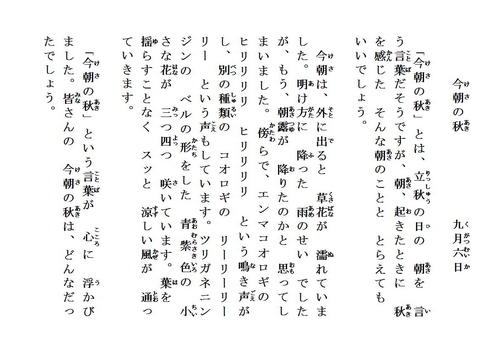 今朝の秋　　九月六日
「今朝の秋」とは、立秋の日の　朝を　言
う言葉だそうですが、朝、起きたときに　秋
を感じた　そんな朝のことと　とらえても
いいでしょう。
今朝は、外に出ると　草花が　濡れていま
した。明け方に　降った　雨のせい　でした
が、もう、朝露が　降りたのかと　思ってし
まいました。傍で、エンマコオロギの
ヒリリリリ　ヒリリリリ　という鳴き声が
し、別の種類の　コオロギの　リーリーリー
リー　という声もしています。ツリガネニン
ジンの　ベルの形をした　青紫色の　小
さな花が　三つ四つ　咲いています。葉を
揺らすことなく　スッと　涼しい風が　通っ
ていきます。
「今朝の秋」という言葉が　心に　浮かび
ました。皆さんの　今朝の秋は、どんなだっ
たでしょう。